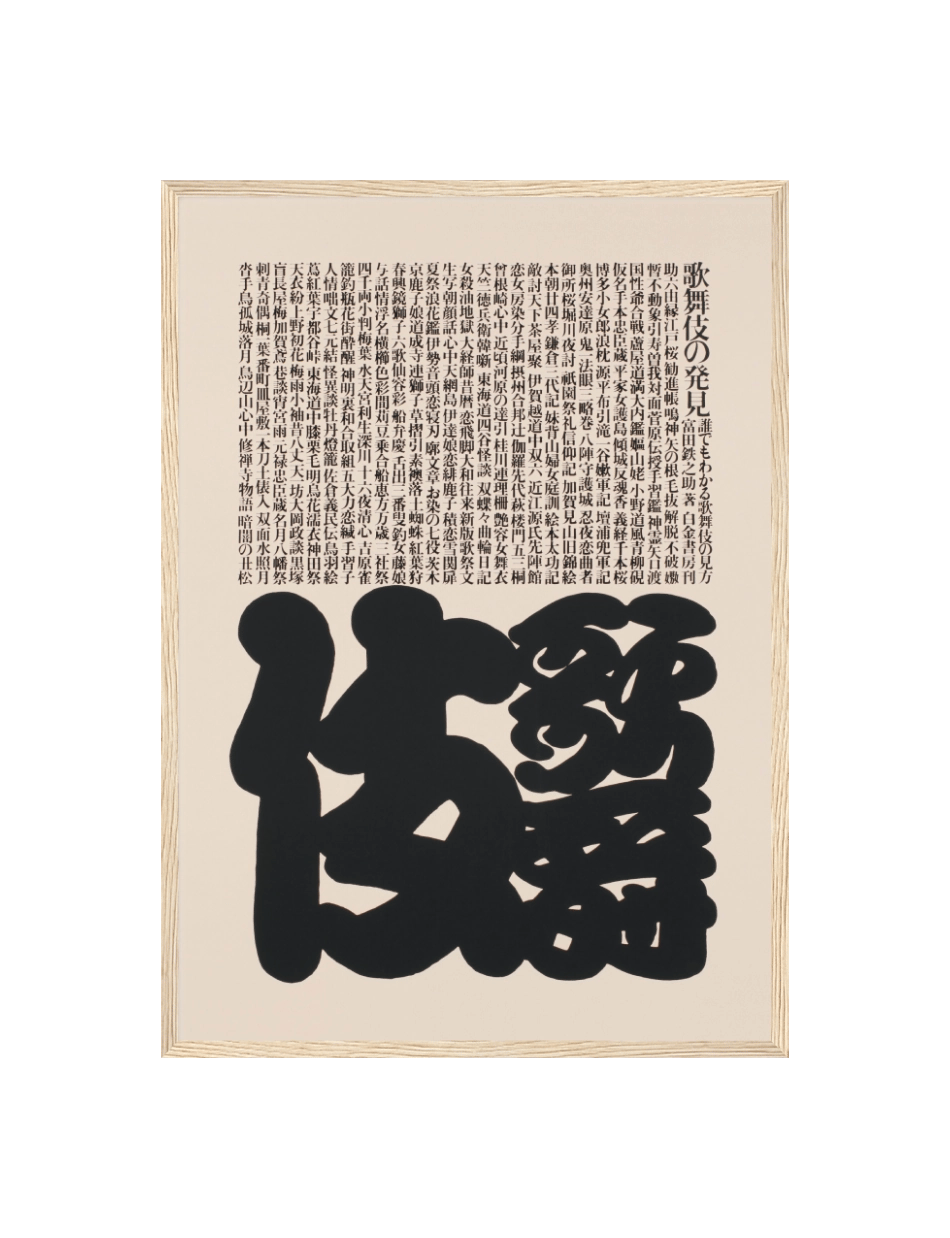 歌舞伎の発見
誰でもわかる歌舞伎の見方
富田鉄之助著 白金書房刊
助六由縁江戸桜 勧進帳 鳴神 矢の根 毛抜 解脱 不破 嫐
暫 不動 象引 寿曽我対面 菅原伝授手習鑑 神霊矢口渡
国性爺合戦 蘆屋道満大内鑑 嫗山姥 小野道風青柳硯
仮名手本忠臣蔵 平家女護島 傾城反魂香 義経千本桜
博多小女郎浪枕 源平布引滝 一谷嫩軍記 壇浦兜軍記
奥州安達原 鬼一法眼三略巻 八陣守護城 忍夜恋曲者
御所桜堀川夜討 祇園祭礼信仰記 加賀見山旧錦絵
本朝廿四孝 鎌倉三代記 妹背山婦女庭訓 絵本太功記
敵討天下茶屋聚 伊賀越道中双六 近江源氏先陣館
恋女房染分手綱 摂州合邦辻 伽羅先代萩 楼門五三桐
曾根崎心中 近頃河原の達引 桂川連理柵 艶容女舞衣
天竺徳兵衛韓噺 東海道四谷怪談 双蝶々曲輪日記
女殺油地獄 大経師昔暦 恋飛脚大和往来 新版歌祭文
生写朝顔話 心中天網島 伊達娘恋緋鹿子 積恋雪関扉
夏祭浪花鑑 伊勢音頭恋寝刃 廓文章 お染の七役 茨木
京鹿子娘道成寺 連獅子 草摺引 素襖落 土蜘 紅葉狩
春興鏡獅子 六歌仙容彩 船弁慶 舌出三番叟 釣女 藤娘
与話情浮名横櫛 色彩間苅豆 乗合船恵方万歳 三社祭
四千両小判梅葉 水天宮利生深川 十六夜清心 吉原雀
籠釣瓶花街酔醒 神明裏和合取組 五大力恋緘 手習子
人情噺文七元結 怪異談牡丹燈籠 佐倉義民伝 鳥羽絵
蔦紅葉宇都谷峠 東海道中膝栗毛 明烏花濡衣 神田祭
天衣紛上野初花 梅雨小袖昔八丈 天一坊大岡政談 黒塚
盲長屋梅加賀鳶 巷談宵宮雨 元禄忠臣蔵 名月八幡祭
刺青奇偶 桐一葉 番町皿屋敷 一本刀土俵入 双面水照月
沓手鳥孤城落月 鳥辺山心中 修禅寺物語 暗闇の丑松
歌舞伎